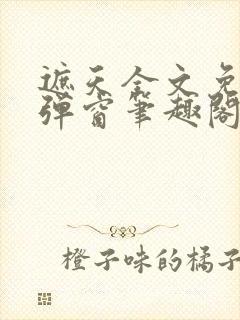 遮天全文免
弹窗笔趣阁
橙子味的橘子